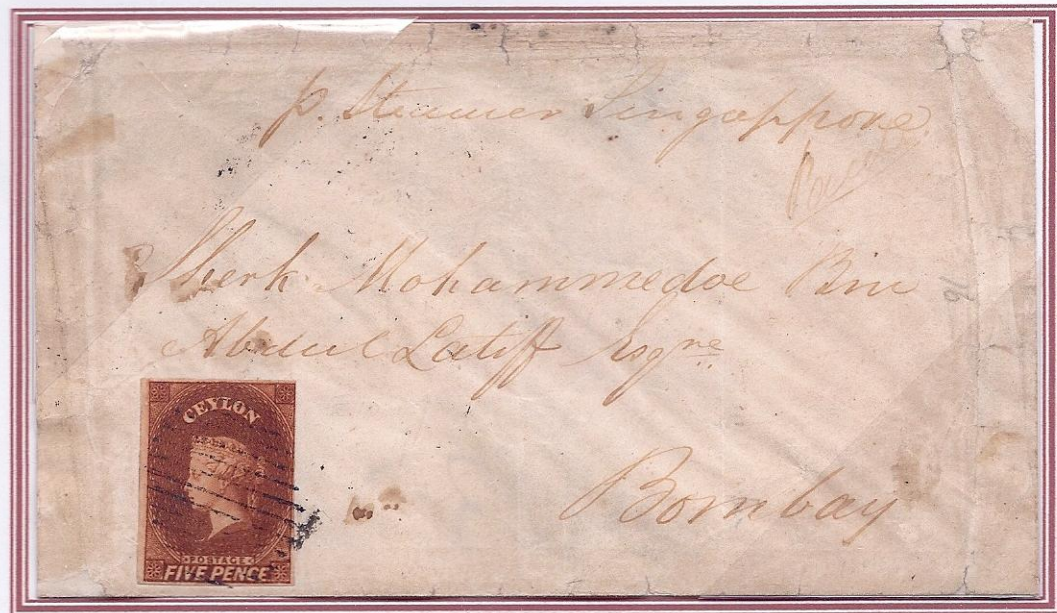 p. Steamer Singappore
Sherk Mohammedoe Bin
Abdul Latiff Esqre
Bombay
CEYLON
POSTAGE
FIVE PENCE